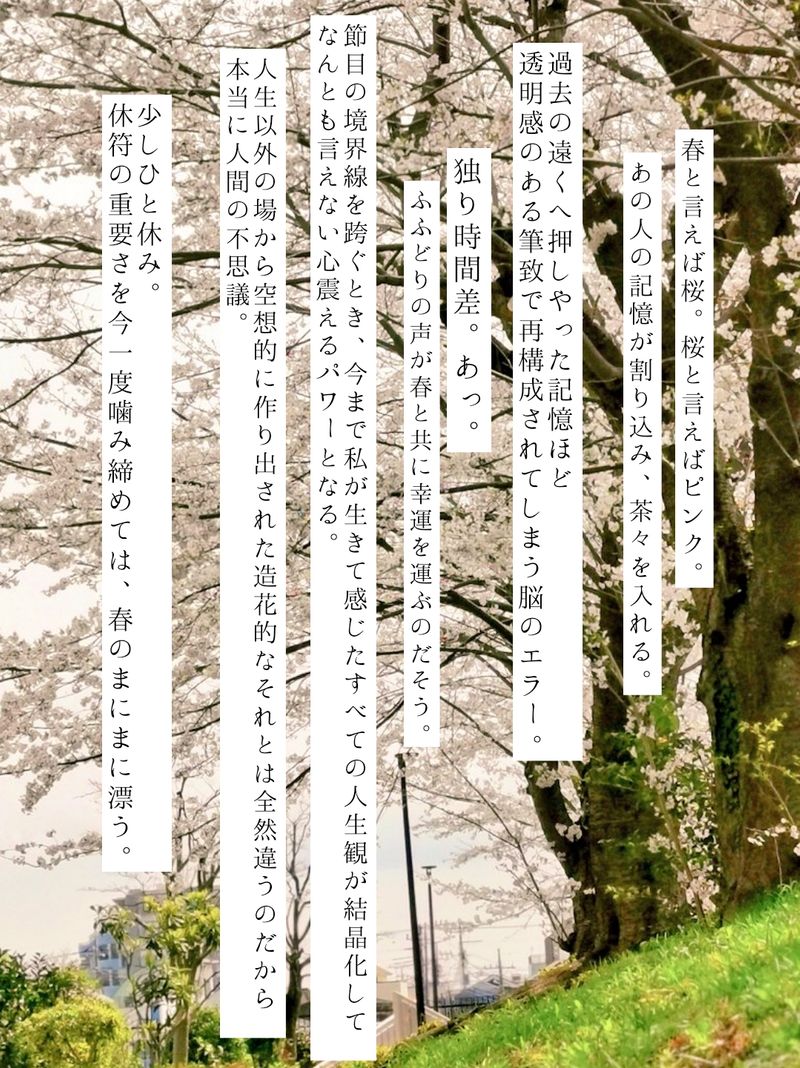 春と言えば桜。桜と言えばピンク。
あの人の記憶が割り込み、茶々を入れる。
過去の遠くへ押しやった記憶ほど
透明感のある筆致で再構成されてしまう脳のエラー。
独り時間差。あっ。
ふふどりの声が春と共に幸運を運ぶのだそう。
節目の境界線を跨ぐとき、今まで私が生きて感じたすべての人生観が結晶化して
なんとも言えない心震えるパワーとなる。
人生以外の場から空想的に作り出された造花的なそれとは全然違うのだから
本当に人間の不思議。
少しひと休み。
休符の重要さを今一度噛み締めては、春のまにまに漂う。